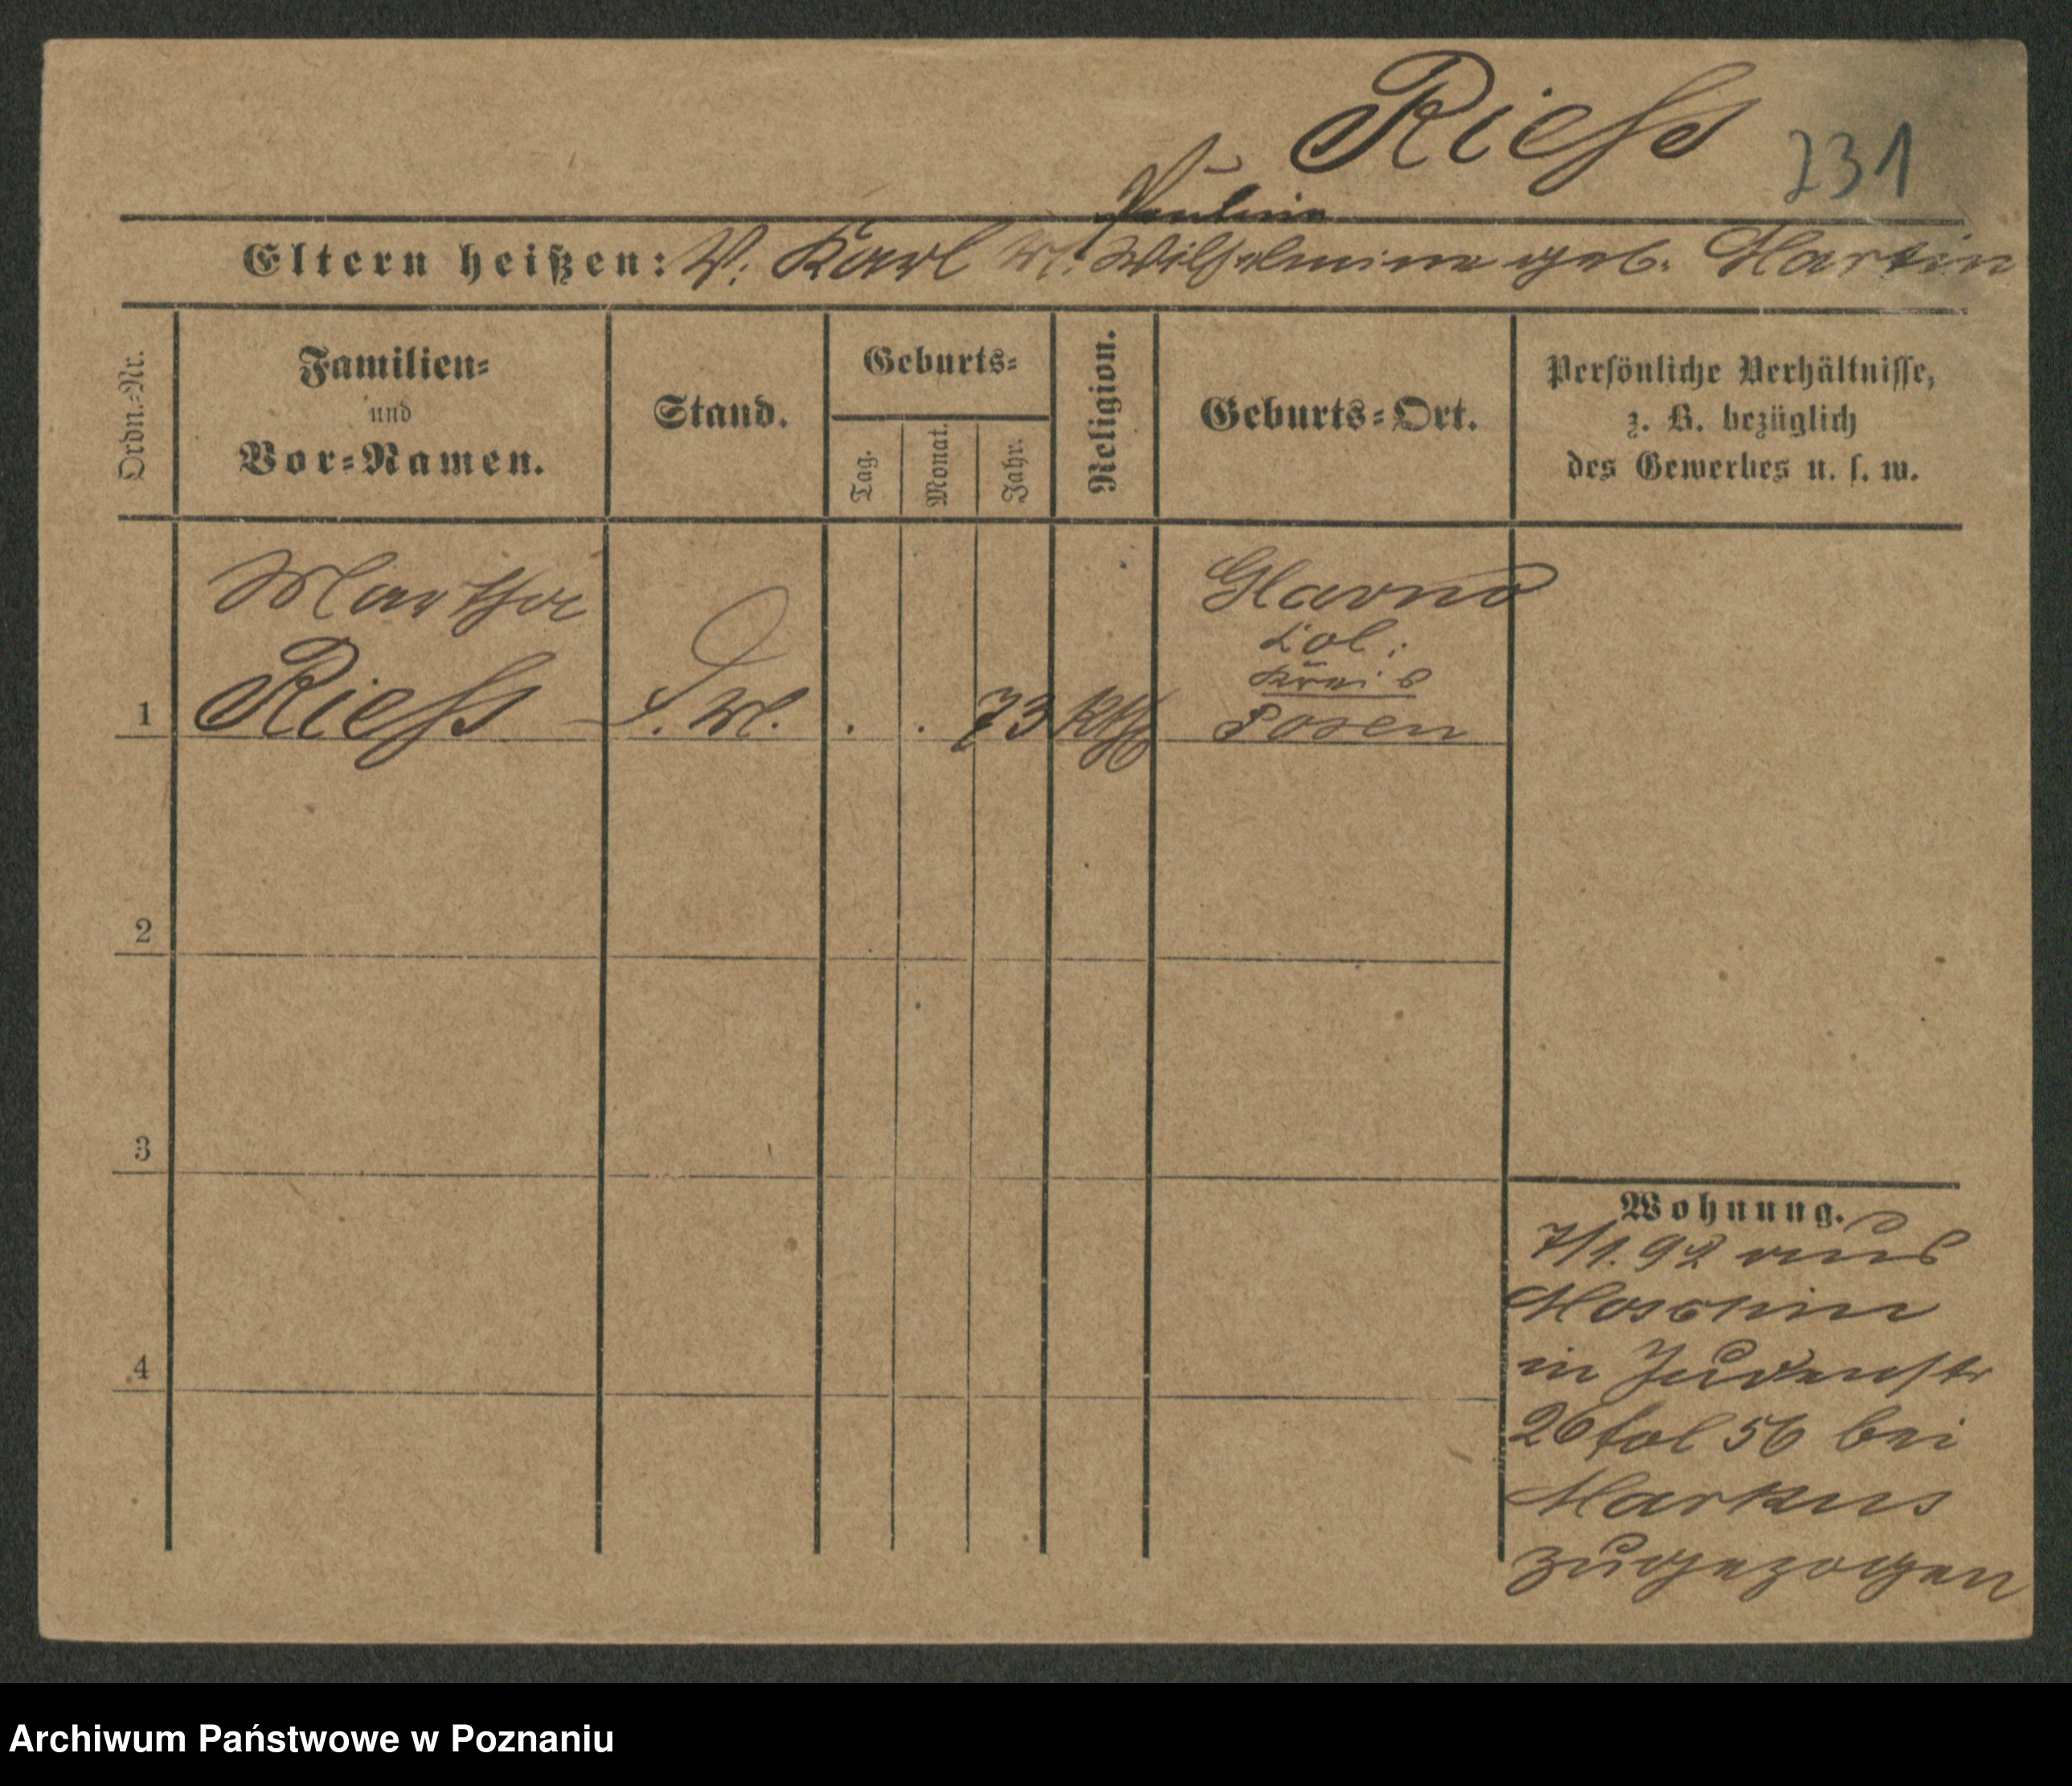 Rieß
231
Pauline
Eltern heißen: V. Karl M. Wilhelmine geb. Martin
Ordn.-Nr.
Familien-
und
Vor-Namen.
Stand.
Geburts-
Tag.
Monat.
Jahr.
Religion.
Geburts-Ort.
Persönliche Verhältnisse,
z. B. bezüglich
des Gewerbes u. s. w.
Martha
Rieß
1
. . 73 kth
Glowno
Col.
Kreis
Posen
2
3
4
Wohnung.
7/1. 92 aus
Moschin
in Judenstr
26 fol 56 bei
Markus
zugezogen
Archiwum Państwowe w Poznaniu